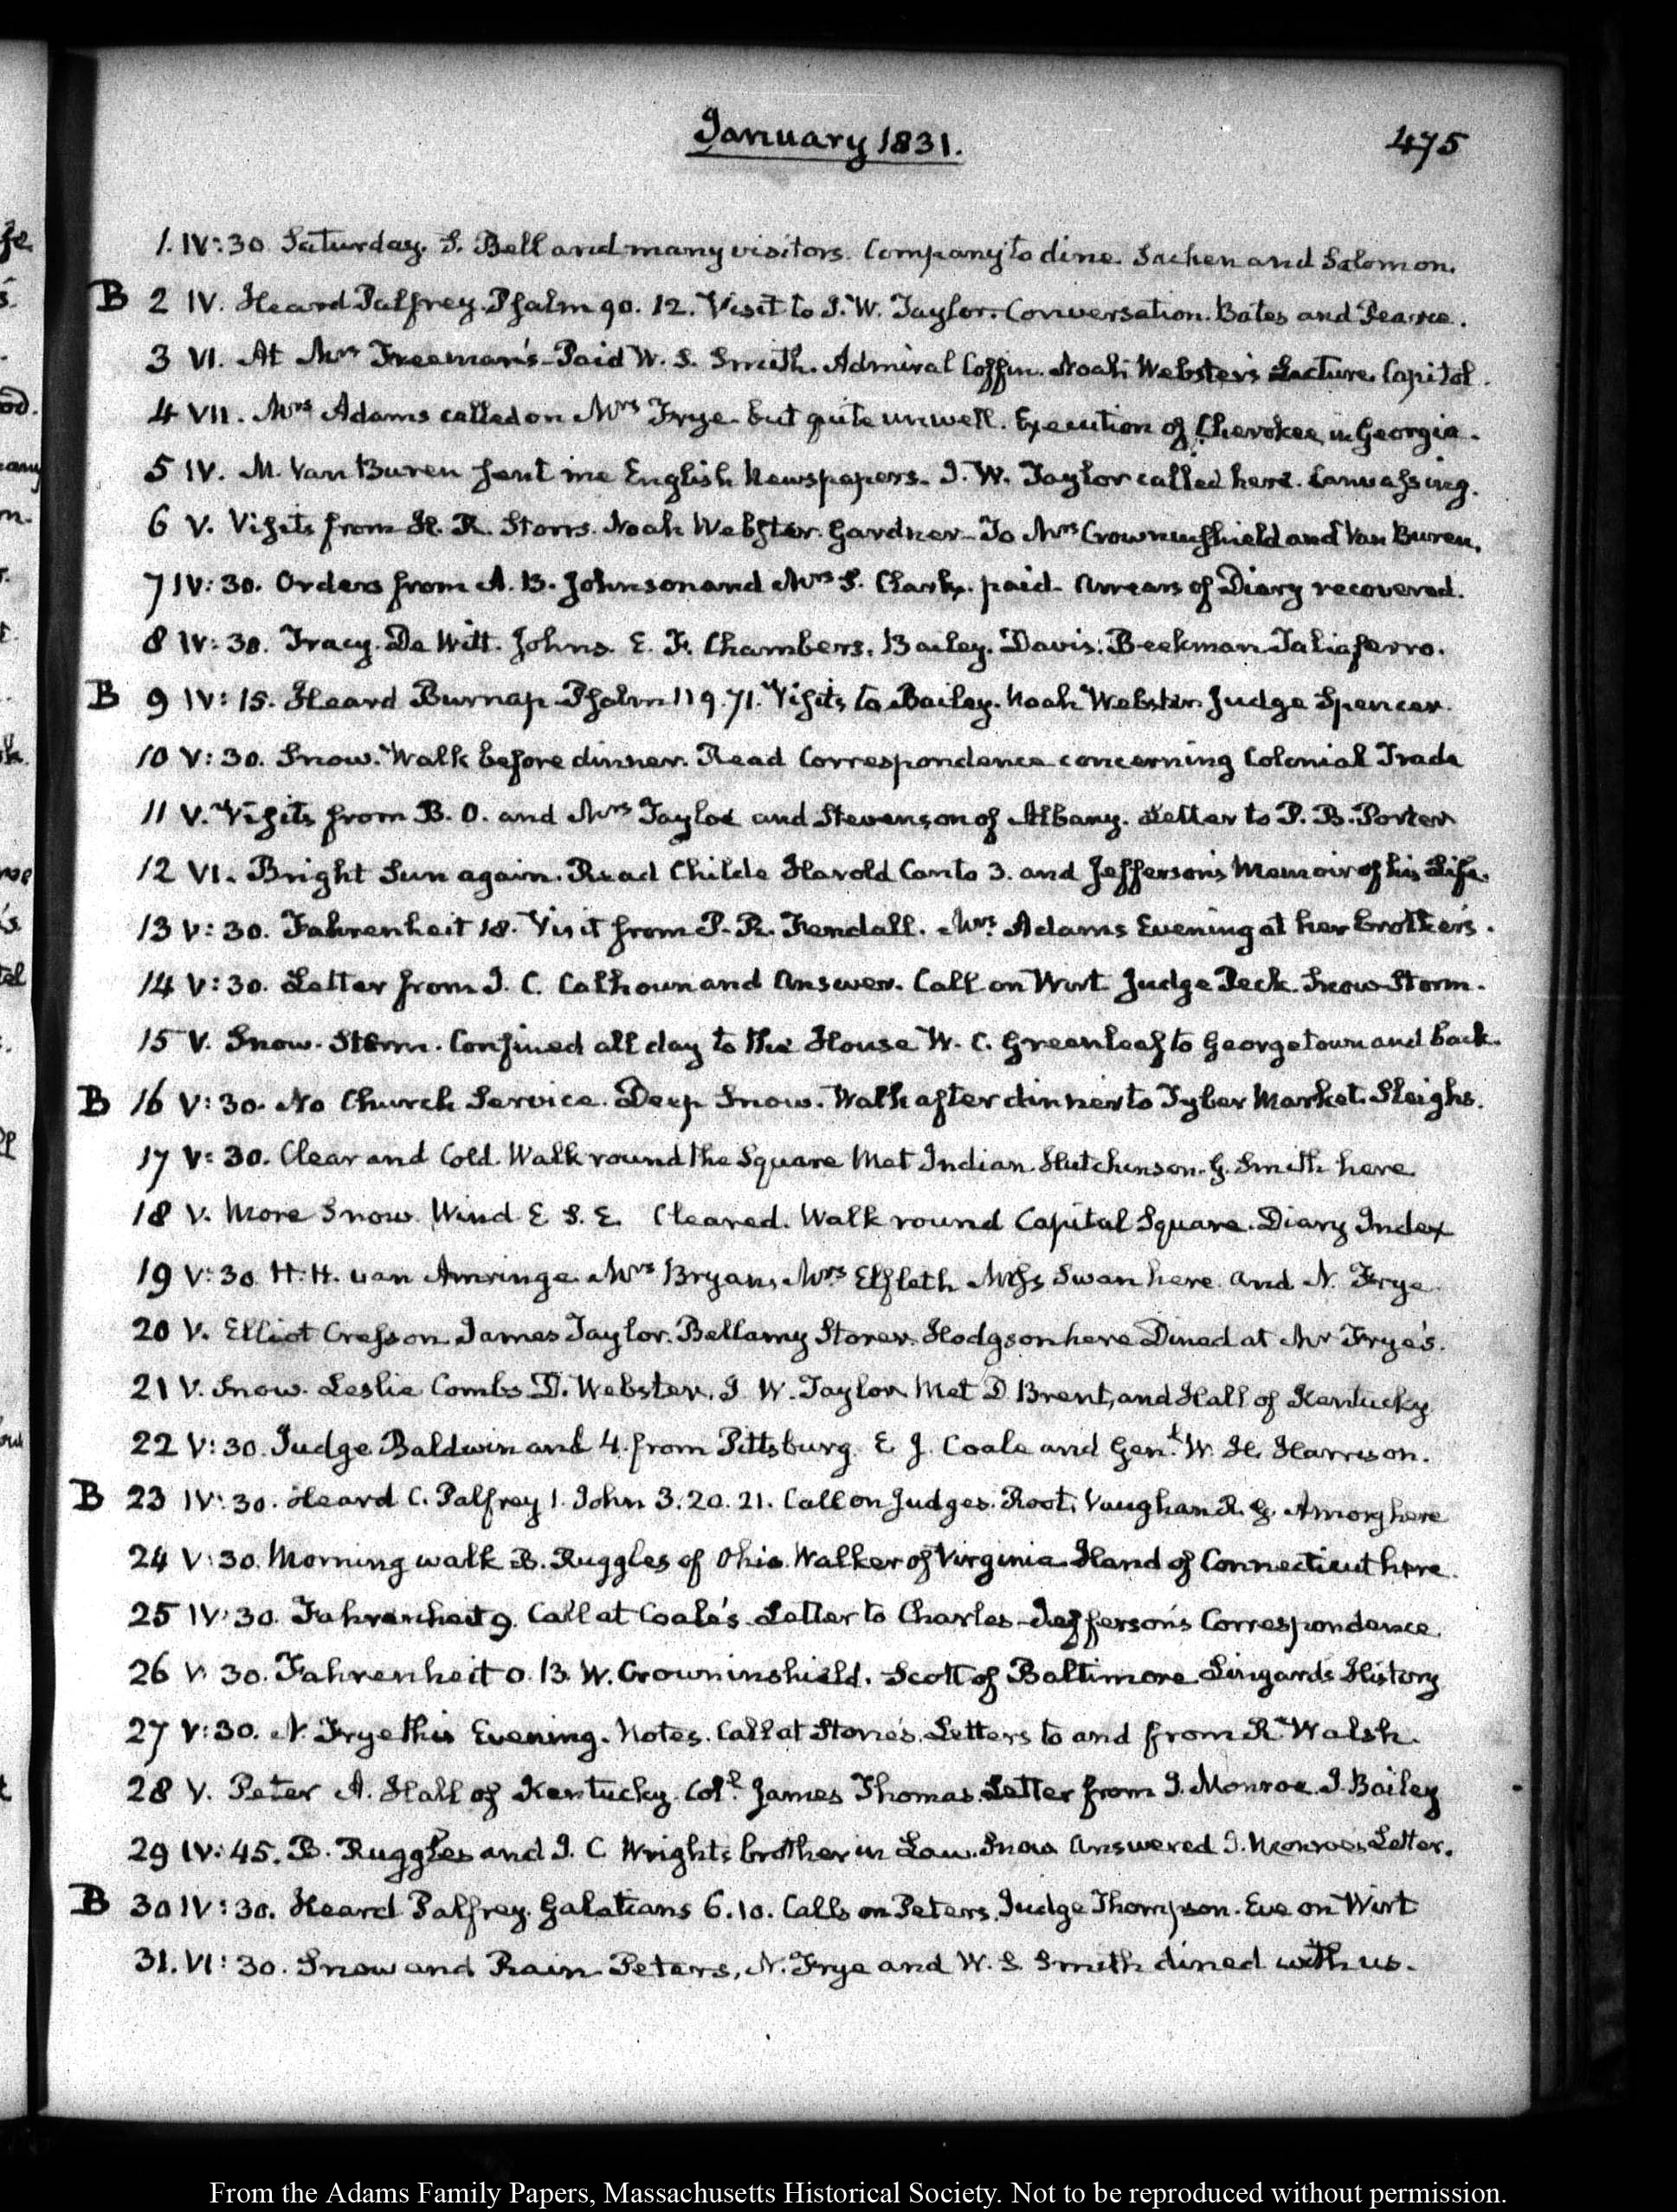 January 1831.
475
1. IV:30 Saturday. S. Bell and many visitors. Company to dine. Sachen and Salomon.
B 2 IV. Heard Palfrey. Psalm 90. 12. Visit to J. W. Taylor. Conversation. Bates and Pearce.
3 VI. At Mrs Freeman's. Paid W. S. Smith. Admiral Coffin. Noah Webster's Lecture. Capitol.
4 VII. Mrs Adams called on Mrs Frye. but quite unwell. Execution of Cherokee in Georgia.
5 IV. M. Van Buren sent me English Newspapers. J. W. Taylor called here. Canvassing.
6 V. Visits from H. R. Storrs. Noah Webster. Gardner. To Mrs Crowninshield and Van Buren.
7 IV:30. Orders from A. B. Johnson and Mrs S. Clark. paid. Arrears of Diary recovered.
8 IV:30. Tracy. De Witt. Johns. E. F. Chambers. Bailey. Davis. Beekman Taliaferro.
B 9 IV:15. Heard Burnap. Psalm 119. 71. Visits to Bailey. Noah Webster. Judge Spencer.
10 V:30. Snow. Walk before dinner. Read Correspondence concerning Colonial Trade
11 V. Visits from B. O. and Mrs Tayloe and Stevenson of Albany. Letter to P. B. Porter
12 VI. Bright Sun again. Read Childe Harold Canto 3. and Jefferson's Memoir of his Life.
13 V:30. Fahrenheit 18. Visit from P. R. Fendall. Mrs Adams Evening at her brother's.
14 V:30. Letter from J. C. Calhoun and Answer. Call on Wirt Judge Peck. Snow Storm.
15 V. Snow. Storm. Confined all day to the House W. C. Greenleaf to Georgetown and back.
B 16 V:30. No Church Service. Deep Snow. Walk after dinner to Tyber Market. Sleighs.
17 V:30. Clear and Cold. Walk round the Square Met Indian. Hutchinson. G. Smith here.
18 V. More Snow. Wind E S. E. Cleared. Walk round Capitol Square. Diary Index
19 V:30 H. H. van Amringe. Mrs Bryan, Mrs Elfleth Miss Swan here. and N. Frye.
20 V. Elliot Cresson. James Taylor. Bellamy Storer. Hodgson here Dined at Mr Frye's.
21 V. Snow. Leslie Combs D. Webster. J W. Taylor Met D Brent, and Hall of Kentucky
22 V:30. Judge Baldwin and 4. from Pittsburg. E J. Coale and Genl W. H. Harrison.
B 23 IV:30. Heard C. Palfrey 1. John 3. 20. 21. Call on Judges. Root. Vaughan R. G. Amory here
24 V:30. Morning walk B. Ruggles of Ohio. Walker of Virginia Hand of Connecticut here.
25 IV:30. Fahrenheit 9. Call at Coale's. Letter to Charles. Jefferson's Correspondence.
26 V 30. Fahrenheit 0. B. W. Crowninshield. Scott of Baltimore Lingards History
27 V:30. N. Frye this Evening. Notes. Call at Stone's. Letters to and from R Walsh.
28 V. Peter A. Hall of Kentucky. Coll James Thomas. Letter from J. Monroe. J. Bailey
29 IV:45. B. Ruggles and J. C Wright's brother in Law. Snow Answered J. Monroe's Letter.
B 30 IV:30. Heard Palfrey. Galatians 6. 10. Calls on Peters. Judge Thompson. Eve on Wirt
31. VI:30. Snow and Rain Peters, N. Frye and W. S Smith dined with us.
From the Adams Family Papers, Massachusetts Historical Society. Not to be reproduced without permission.